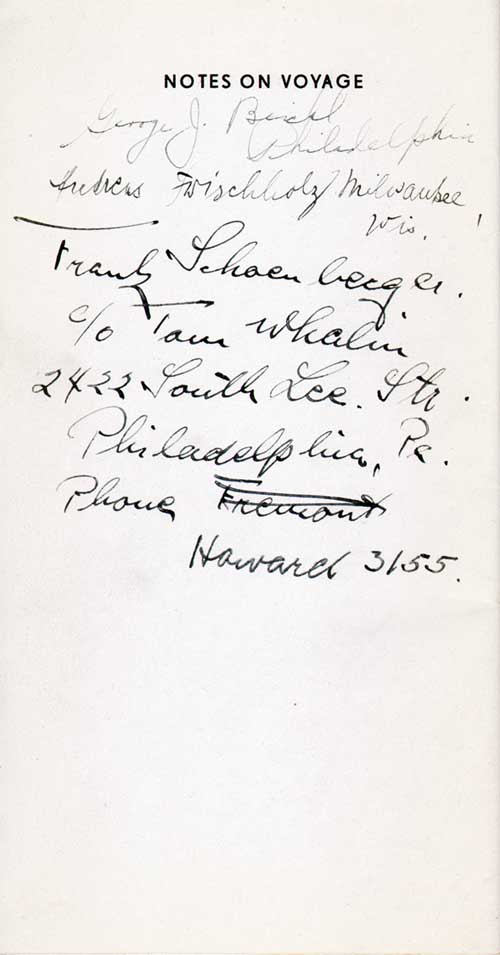 NOTES ON VOYAGE
George J.
Philadelphia
Andreas Frischholz Milwaukee
Wis.
Frank Schoenberger.
c/o Tom Whalin
2422 South Lee. Str.
Philadelphia, Pa.
Phone Fremont
Howard 3155.